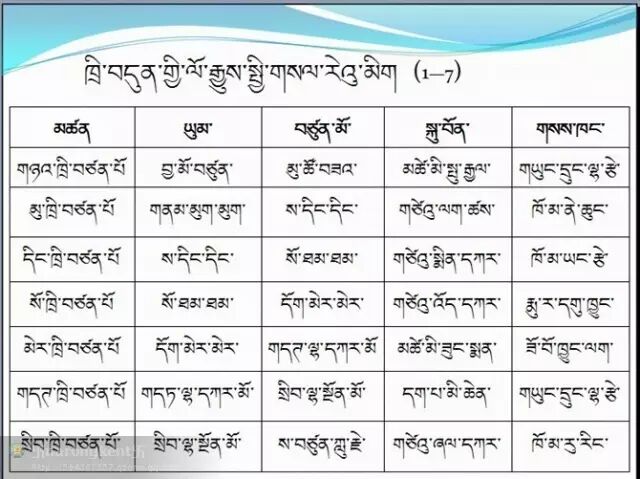 ཁྲི་བདུན་གྱི་ལོ་རྒྱུས་སྤྱི་གསལ་རེའུ་མིག (1–7)
མཚན ཡུམ་ བཙུན་མོ་ སྐུ་བོན་ གསས་ཁང་
གཉའ་ཁྲི་བཙན་པོ བྱ་མོ་བཙུན་ མུ་ཚོ་བཟའ་ མཚེ་མི་སྤུ་རྒྱལ་ གཡུང་དྲུང་ལྷ་རྩེ་
མུ་ཁྲི་བཙན་པོ གནམ་མུག་མུག་ ས་དིང་དིང་ གཙེའུ་ལག་ཚས་ ཁོ་མ་ནེ་ཆུང་
དིང་ཁྲི་བཙན་པོ ས་དིང་དིང་ སོ་ཐམ་ཐམ་ གཙེའུ་སྨིན་དཀར་ ཁོ་མ་ཡང་རྩེ་
སོ་ཁྲི་བཙན་པོ སོ་ཐམ་ཐམ་ དོག་མེར་མེར་ གཙེའུ་འོད་དཀར་ རྨུ་ར་དགུ་ཁྱུང་
མེར་ཁྲི་བཙན་པོ དོག་མེར་མེར་ གདཊ་ལྷ་དཀར་མོ མཚེ་མི་ཟུང་སྨན་ ཟོ་བོ་ཁྱུང་ལག་
གདཊ་ཁྲི་བཙན་པོ གདཏ་ལྷ་དཀར་མོ་ སྲིབ་ལྷ་སྔོན་མོ་ དག་པ་མི་ཆེན་ གཡུང་དྲུང་ལྷ་རྩེ་
སྲིབ་ཁྲི་བཙན་པོ་ སྲིབ་ལྷ་སྔོན་མོ་ ས་བཙུན་ཀླུ་རྗེ་ གཙེའུ་ཞལ་དཀར་ ཁོ་མ་རུ་རིང་